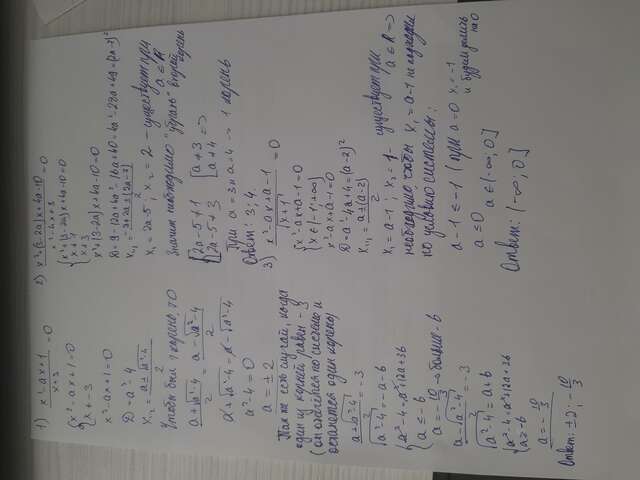 1) x²-ax+1 / x+3 = 0
{x²-ax+1=0
x≠-3
x²-ax+1=0
D=a²-4
x₁,₂ = a±√a²-4 / 2
Чтобы был 1 корень, то
a+√a²-4 / 2 = a-√a²-4 / 2
a+√a²-4 = a-√a²-4
a²-4=0
a=±2
Так же есть случай, когда
один из корней равен -3
(он отсеется по системе и
останется один корень)
a+√a²-4 / 2 = -3
√a²-4 = -a-6
{a²-4=a²+12a+36
a≤-6
a=-10/3 → больше -6
a-√a²-4 / 2 = -3
√a²-4 = a+6
{a²-4=a²+12a+36
a≥-6
a=-10/3
Ответ: ±2; -10/3
2) x²+(3-2a)x+4a-10 / = 0
x²+(3-2a)x+4a-10=0
x²+(3-2a)x+4a-10=0
D=9-12a+4a²-16a+40=4a²-28a+49=(2a-7)²
x₁,₂ = -3+2a±(2a-7) / 2
x₁=2a-5; x₂=2 - существует при
a∈R
Значит необходимо "убрать" второй
корень
[2a-5≠1
2a-5≠3
[a≠3
a≠4 =>
При a=3 и a=4 → 1 корень
Ответ: 3; 4.
3) x²-ax+a-1 / √x+1 = 0
{x²-ax+a-1=0
x∈(-1;+∞)
x²-ax+a-1=0
D=a²-4a+4=(a-2)²
x₁,₂ = a±(a-2) / 2
x₁=a-1; x₂=1 - существует при
a∈R =>
необходимо чтобы x₁=a-1 не подходил
по условию системы:
a-1≤-1 (при a=0 x₁=-1
и будем делить
на 0
a≤0 a∈(-∞;0]
Ответ: (-∞;0]